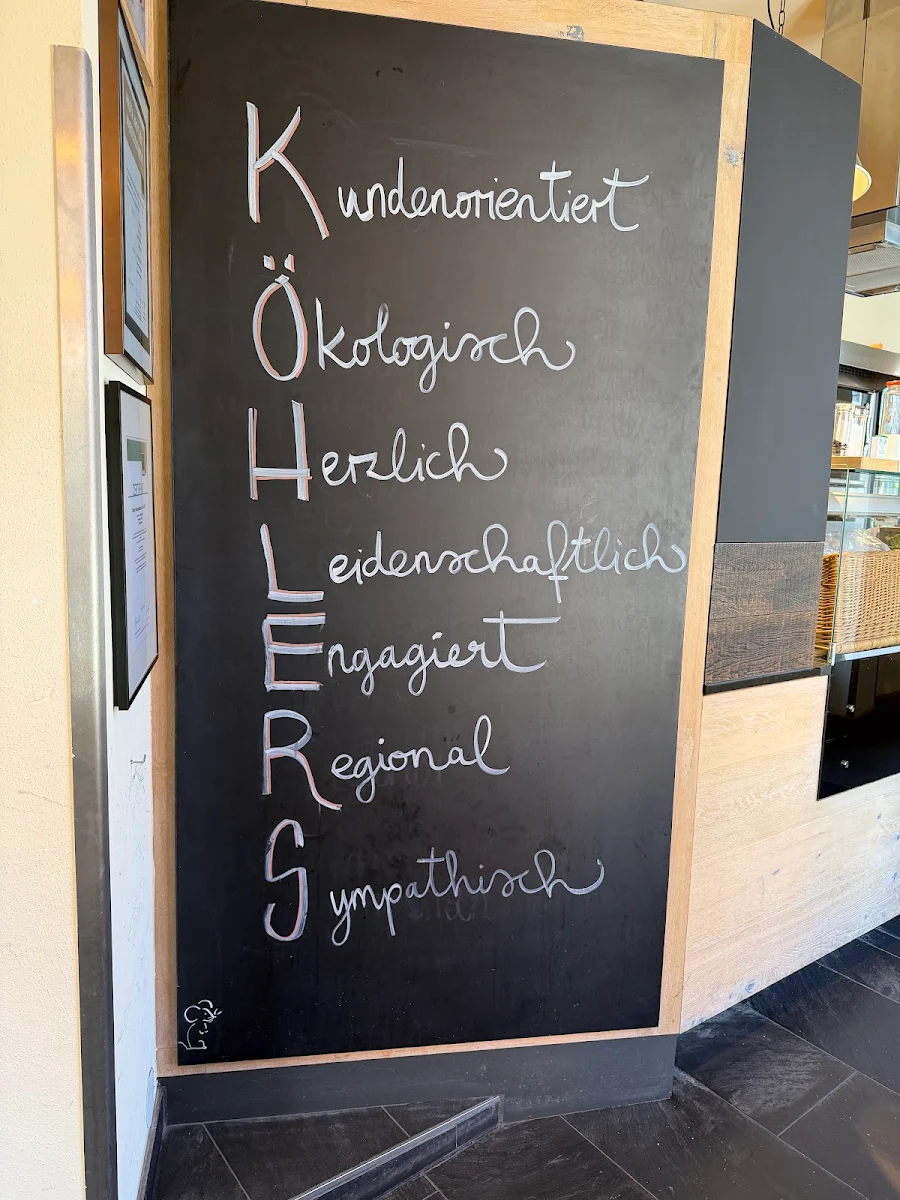 Kundenorientiert
Ökologisch
Herzlich
Leidenschaftlich
Engagiert
Regional
Sympathisch